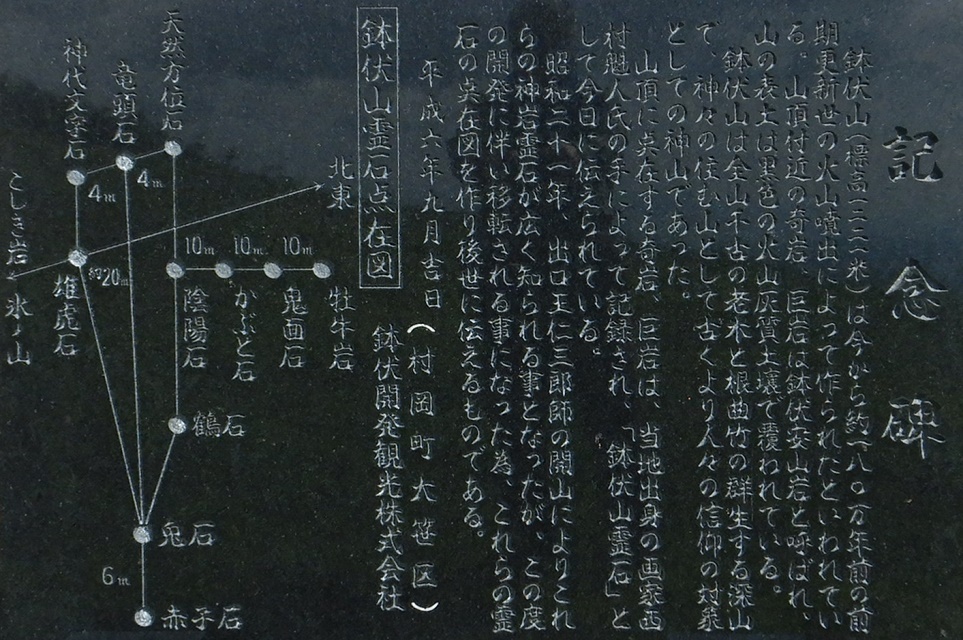 記念碑
鉢伏山(標高一二二一米)は今から約一八〇万年前の前
期更新世の火山噴出によって作られたといわれてい
る。山頂付近の奇岩、巨岩は鉢伏安山岩と呼ばれ、
山の表土は黒色の火山灰質土壌で覆われている。
鉢伏山は全山千古の老木と根曲竹の群生する深山
で、神々の住む山として古くより人々の信仰の対象
としての神山であった。
山頂に点在する奇岩、巨岩は、当地出身の画家西
村魁人氏の手によって記録され、「鉢伏山霊石」と
して今日に伝えられている。
昭和二十一年、出口王仁三郎師の開山によりこれ
らの神岩霊石が広く知られる事となったが、この度
の開発に伴い移転される事になった為、これらの霊
石の点在図を作り後世に伝えるものである。
平成六年九月吉日
(村岡町大笹区)
鉢伏開発観光株式会社
鉢伏山霊石点在図
北東
天然方位石
竜頭石
神代文字石
4m
4m
10m
10m
10m
約20m
牡牛岩
鬼面石
かぶと石
陰陽石
雄虎石
こしき岩
氷ノ山
鶴石
鬼石
6m
赤子石